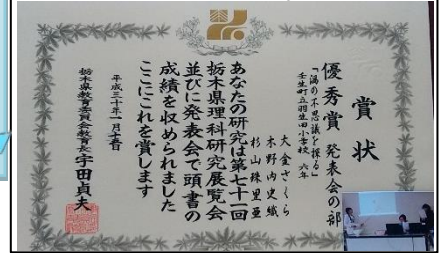 賞状
優秀賞 発表会の部
「渦の不思議を探る」
壬生町立羽生田小学校 六年
大金さくら
木野内史織
杉山珠里亜
あなたの研究は第七十一回
栃木県理科研究展覧会
並びに発表会で頭書の
成績を収められました
ここにこれを賞します
平成三十年一月十三日
栃木県教育委員会教育長 宇田貞夫